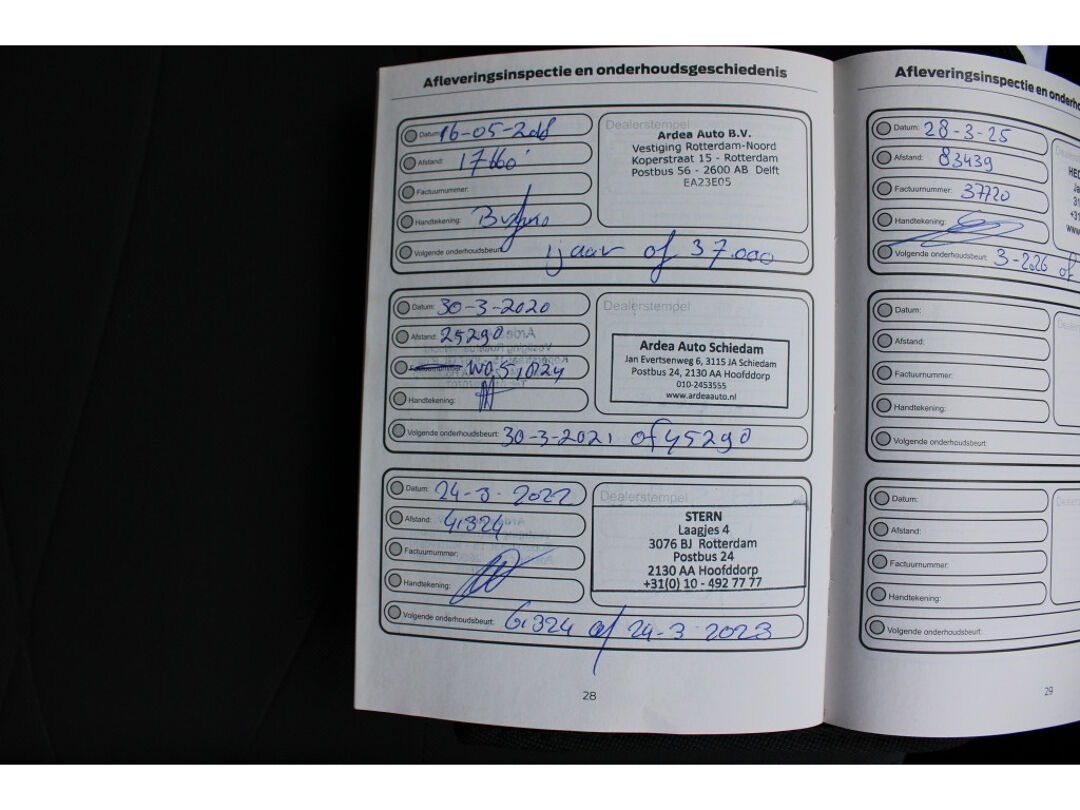 Afleveringsinspectie en onderhoudsgeschiedenis
Datum: 16-05-2018
Afstand: 17660
Factuurnummer:
Handtekening:
Volgende onderhoudsbeurt: 1jaar of 37.000
Dealerstempel
Ardea Auto B.V.
Vestiging Rotterdam-Noord
Koperstraat 15 - Rotterdam
Postbus 56 - 2600 AB Delft
EA23E05
Datum: 30-3-2020
Afstand: 25290
Factuurnummer: WO
Handtekening:
Volgende onderhoudsbeurt: 30-3-2021 of 45290
Dealerstempel
Ardea Auto Schiedam
Jan Evertsenweg 6, 3115 JA Schiedam
Postbus 24, 2130 AA Hoofddorp
010-2453555
www.ardeaauto.nl
Datum: 24-3-2022
Afstand: 41324
Factuurnummer:
Handtekening:
Volgende onderhoudsbeurt: 61324 of 24-3-2023
Dealerstempel
STERN
Laagjes 4
3076 BJ Rotterdam
Postbus 24
2130 AA Hoofddorp
+31(0) 10 - 492 77 77
28
Afleveringsinspectie en onderho
Datum: 28-3-25
Afstand: 83439
Factuurnummer: 37720
Handtekening:
Volgende onderhoudsbeurt: 3-2026 of
Datum:
Afstand:
Factuurnummer:
Handtekening:
Volgende onderhoudsbeurt:
Datum:
Afstand:
Factuurnummer:
Handtekening:
Volgende onderhoudsbeurt:
29